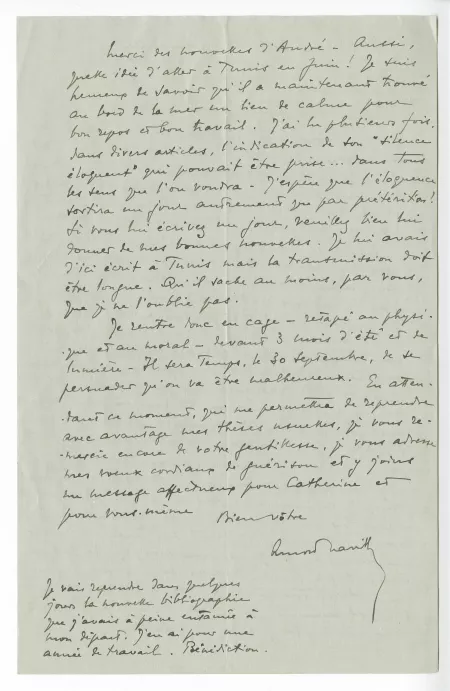 Merci des nouvelles d'André – Aussi,
quelle idée d'aller à Tunis en juin ! Je suis
heureux de savoir qu'il a maintenant trouvé
au bord de la mer un lieu de calme pour
bon repos et bon travail. J'ai lu plusieurs fois,
dans divers articles, l'indication de son "silence
éloquent" qui pouvait être prise... dans tous
les sens que l'on voudra – J'espère que l'éloquence
sortira un jour autrement que par prétérition !
Si vous lui écrivez un jour, veuillez bien lui
donner de mes bonnes nouvelles. Je lui avais
d'ici écrit à Tunis mais la transmission doit
être longue. Qu'il sache au moins, par vous,
que je ne l'oublie pas.
Je rentre donc en cage – retapé au physi-
que et au moral – devant 3 mois d'été et de
lumière – Il sera temps, le 30 septembre, de se
persuader qu'on va être malheureux. En atten-
dant ce moment, qui me permettra de reprendre
avec avantage mes thèses usuelles, je vous re-
mercie encore de votre gentillesse, je vous adresse
mes voeux cordiaux de guérison et y joins
un message affectueux pour Catherine et
pour vous-même Bien vôtre
Arnold Naville
Je vais reprendre dans quelques
jours la nouvelle bibliographie
que j'avais à peine entamée à
mon départ. J'en ai pour une
année de travail. Bénédiction.